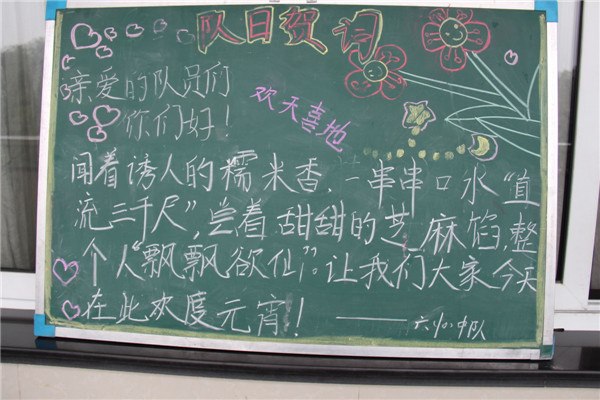 队日贺词
亲爱的队员们
你们好！
欢天喜地
闻着诱人的糯米香，一串串口水“直
流三千尺”，尝着甜甜的芝麻馅，整
个人“飘飘欲仙”。让我们大家今天
在此欢度元宵！ ——六中队